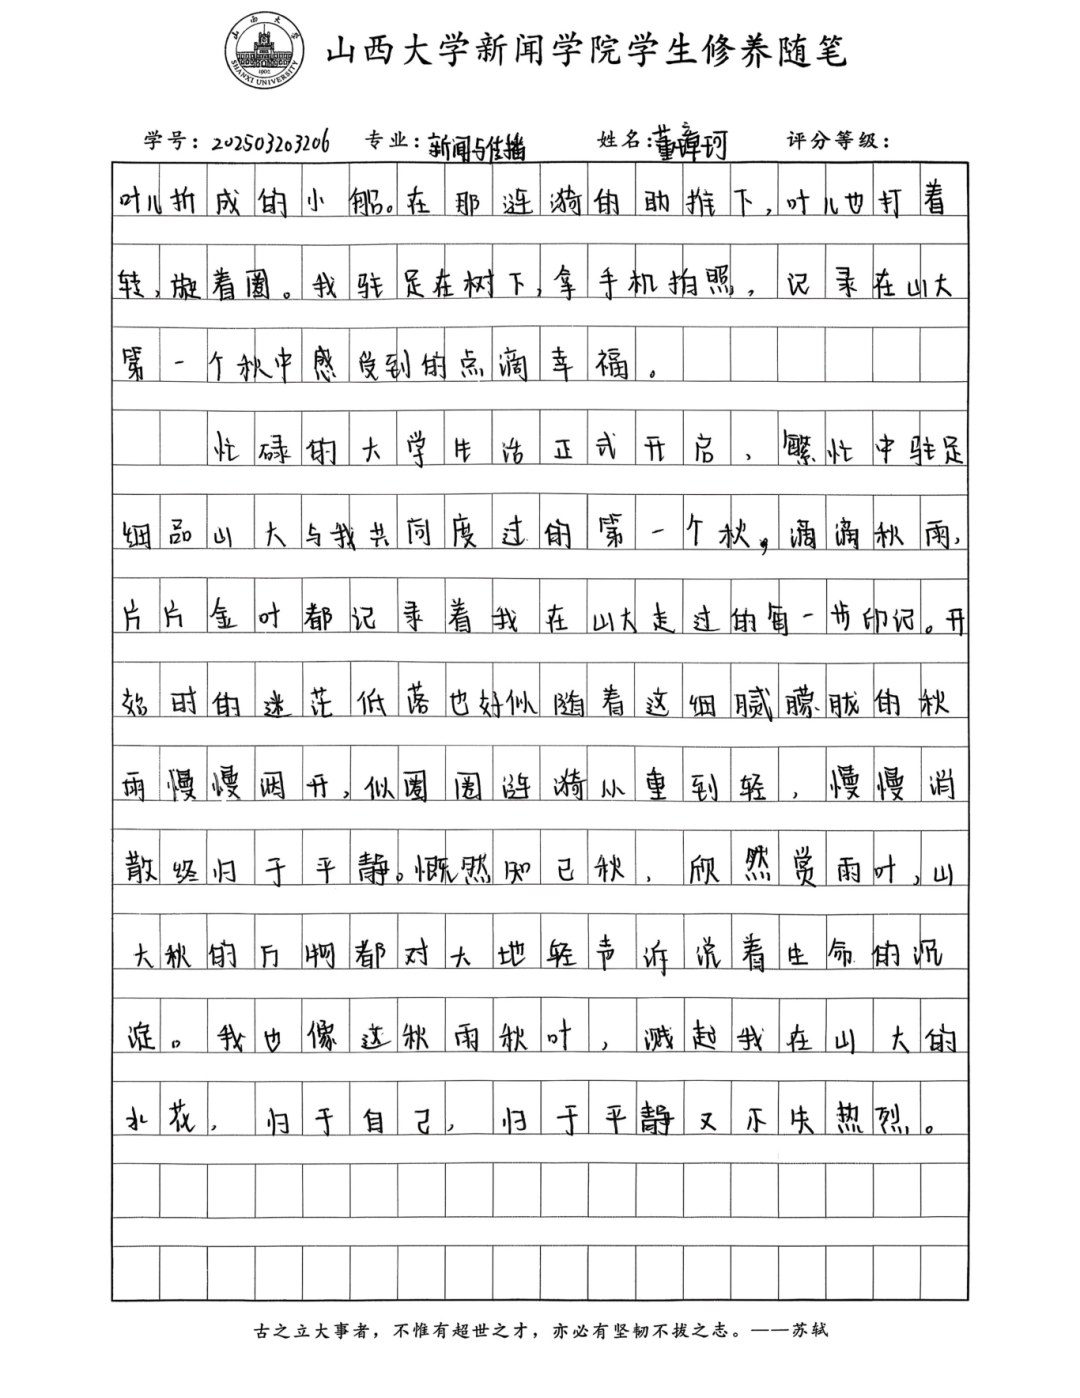 山西大学
SHANXI UNIVERSITY
1902
山西大学新闻学院学生修养随笔
学号：202503203206 专业：新闻与传播 姓名：董璋珂 评分等级：
叶儿折成的小船。在那涟漪的助推下，叶儿也打着
转，旋着圈。我驻足在树下，拿手机拍照，记录在山大
第一个秋中感受到的点滴幸福。
忙碌的大学生活正式开启，繁忙中驻足
细品山大与我共同度过的第一个秋，滴滴秋雨，
片片金叶都记录着我在山大走过的每一步印记。开
始时的迷茫低落也好似随着这细腻朦胧的秋
雨慢慢洇开，似圈圈涟漪从重到轻，慢慢消
散终归于平静。慨然知己秋，欣然赏雨叶，山
大秋的万物都对大地轻声诉说着生命的沉
淀。我也像这秋雨秋叶，溅起我在山大的
水花，归于自己，归于平静又不失热烈。
古之立大事者，不惟有超世之才，亦必有坚韧不拔之志。——苏轼